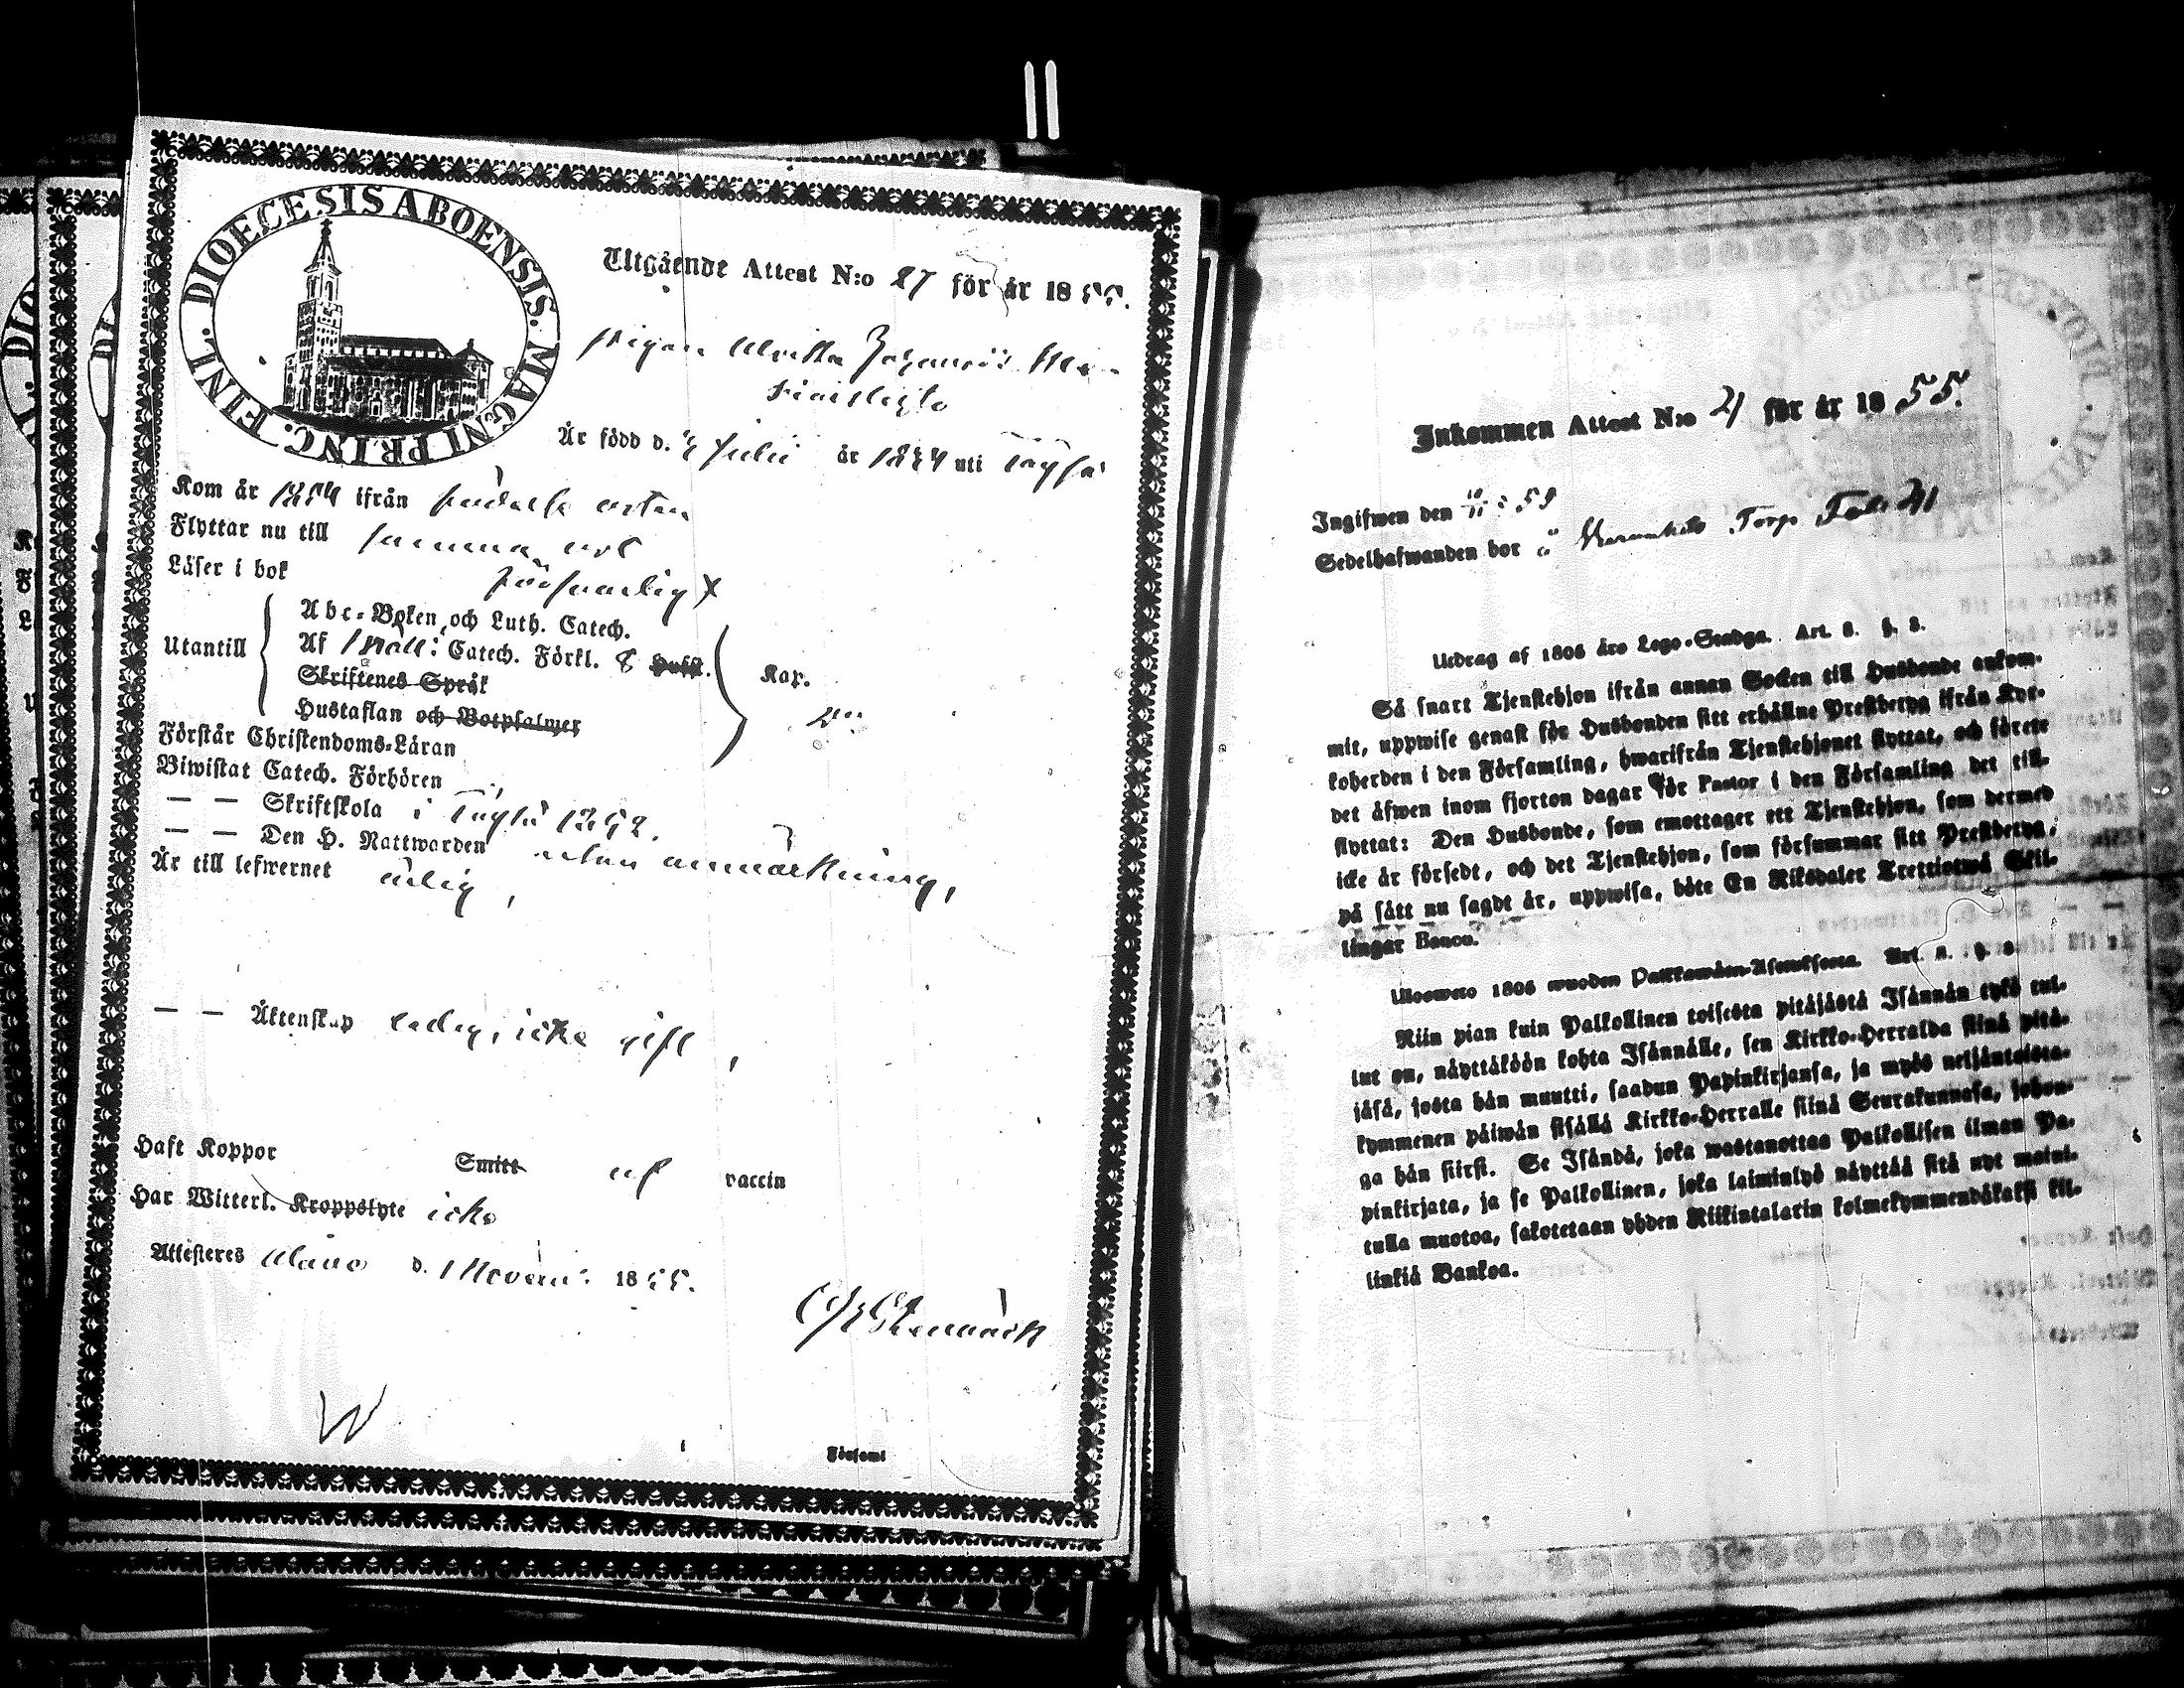 DIOECESIS ABOENSIS. MAGNI PRINC. FINL.
Utgående Attest N:o 27 för år 1855.
Pigan Ulrika
Är född d. Juli år 1834 uti Töysä
Kom år 1854 ifrån födelse orten
Flyttar nu till samma ort
Läser i bok försvarlig
Utantill
Abc-Boken och Luth. Catech.
Af Catech. Förkl. 8 Hufst.
Skriftenes Språk
Hustaflan och Botpsalmer
Kap.
Förstår Christendoms-Läran
Biwistat Catech. Förhören
— — Skriftskola i Töysä 1852.
— — Den H. Nattwarden utan anmärkning,
Är till lefwernet ärlig,
— — Äktenskap ledig, icke gift,
Haft Koppor Smitt af vaccin
Har Witterl. Kroppslyte icke
Attesteres Alavo d. 1 Novem: 1855.
Församl
Inkommen Attest N:o 21 för år 1855.
Ingifwen den
Sedelhafwanden bor å Torp
Utdrag af 1805 års Lego-Stadga. Art. 8. §. 3.
Så snart Tjenstehjon ifrån annan Socken till Husbonde ankom-
mit, uppwise genast för Husbonden sitt erhållne Prestbetyg ifrån Kyr-
koherden i den Församling, hwarifrån Tjenstehjonet flyttat, och förete
det äfwen inom fjorton dagar för Pastor i den Församling det till-
flyttat: Den Husbonde, som emottager ett Tjenstehjon, som dermed
icke är försedt, och det Tjenstehjon, som försummar sitt Prestbetyg,
på sätt nu sagdt är, uppwisa, böte En Riksdaler Trettiotwå Skil-
lingar Banco.
Ulosweto 1805 wuoden Palkkawäen-Asetuksesta. Art. 8. §. 3.
Niin pian kuin Palkollinen toisesta pitäjästä Isännän tykö tul-
lut on, näyttäköön kohta Isännälle, sen Kirkko-Herralda siinä pitä-
jäsä, josta hän muutti, saadun Papinkirjansa, ja myös neljäntoista-
kymmenen päiwän sisällä Kirkko-Herralle siinä Seurakunnasa, johon-
ga hän siirsi. Se Isändä, joka wastanottaa Palkollisen ilman Pa-
pinkirjata, ja se Palkollinen, joka laiminlyö näyttää sitä nyt mainit-
tulla muotoa, sakotetaan yhden Riikintalarin kolmekymmendäkaksi kil-
linkiä Bankoa.